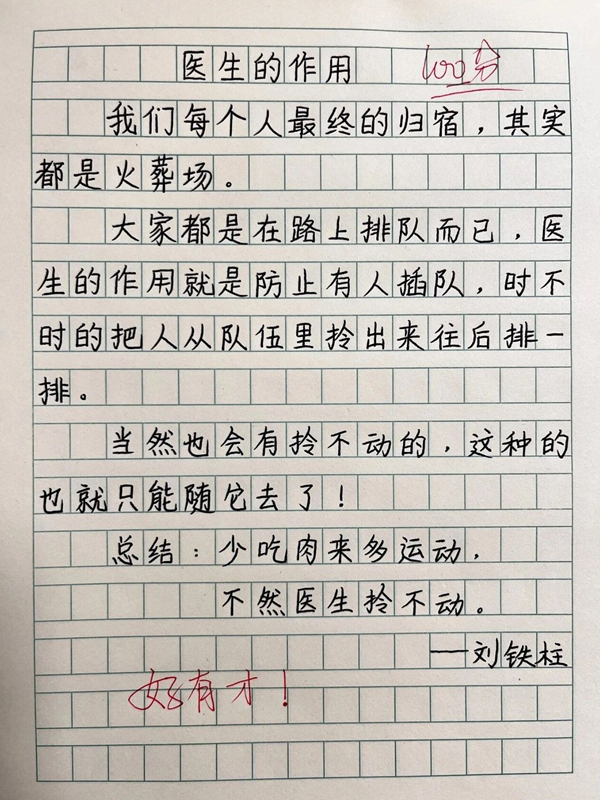 医生的作用 100分
我们每个人最终的归宿，其实
都是火葬场。
大家都是在路上排队而已，医
生的作用就是防止有人插队，时不
时的把人从队伍里拎出来往后排一
排。
当然也会有拎不动的，这种的
也就只能随它去了！
总结：少吃肉来多运动，
不然医生拎不动。
——刘铁柱
好有才！